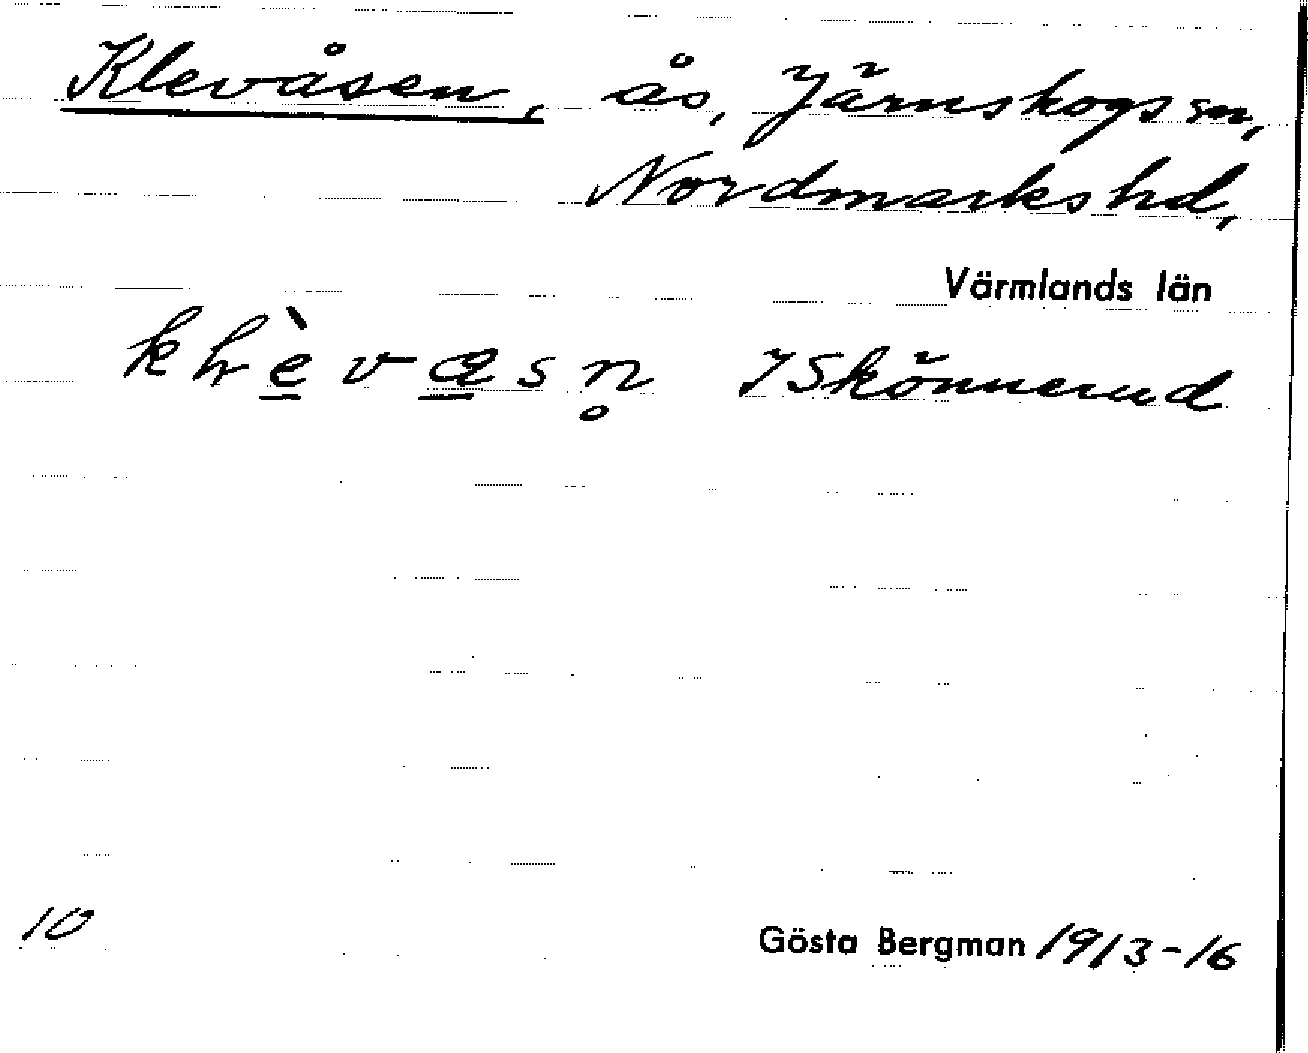 Klevåsen, ås, Järnskogs sn,
Nordmarks hd,
Värmlands län
Skönnerud
10
Gösta Bergman 1913-16